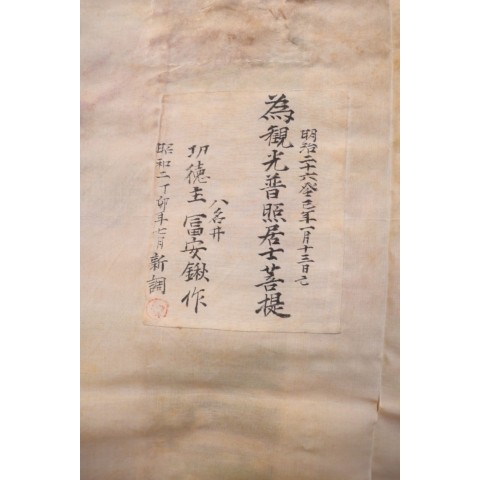 明治二十六癸巳年一月十三日亡
為観光普照居士菩提
八名井
功徳主冨安鍬作
昭和二丁卯年七月新調